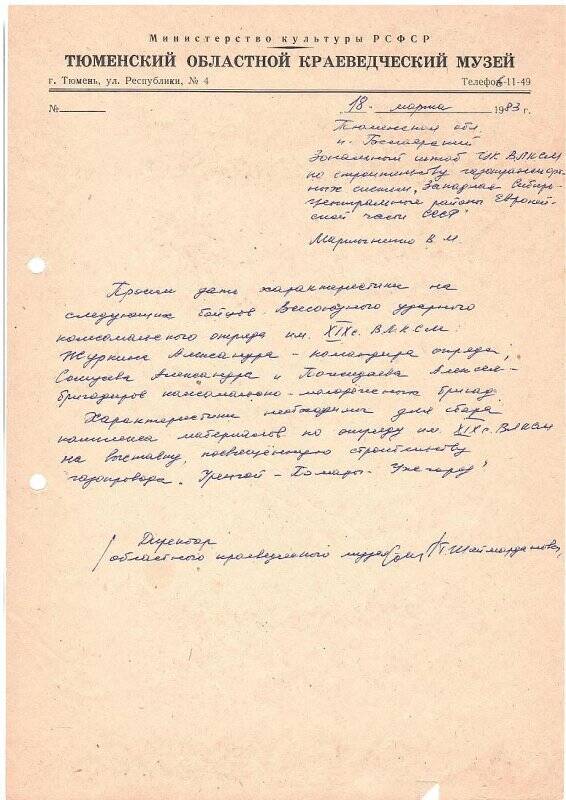 Министерство культуры РСФСР
ТЮМЕНСКИЙ ОБЛАСТНОЙ КРАЕВЕДЧЕСКИЙ МУЗЕЙ
г. Тюмень, ул. Республики, № 4 Телефон 6-11-49
№ 18 марта 1983 г.
Тюменская обл.
п.
Зональный штаб ЦК ВЛКСМ
по строительству газотранспорт-
ных систем „Западная Сибирь-
центральные районы Европей-
ской части СССР"
Мартыненко В. М.
Просим дать характеристики на
следующих бойцов Всесоюзного ударного
комсомольского отряда им. XIX с. ВЛКСМ:
Журкина Александра – командира отряда,
Александра и Алексея-
бригадиров комсомольско-молодежных бригад.
Характеристики необходимы для сбора
комплекса материалов по отряду им. XIX с. ВЛКСМ
на выставку, посвященную строительству
газопровода „Уренгой – Помары – Ужгород"
Директор
областного краеведческого музея Шаймарданова